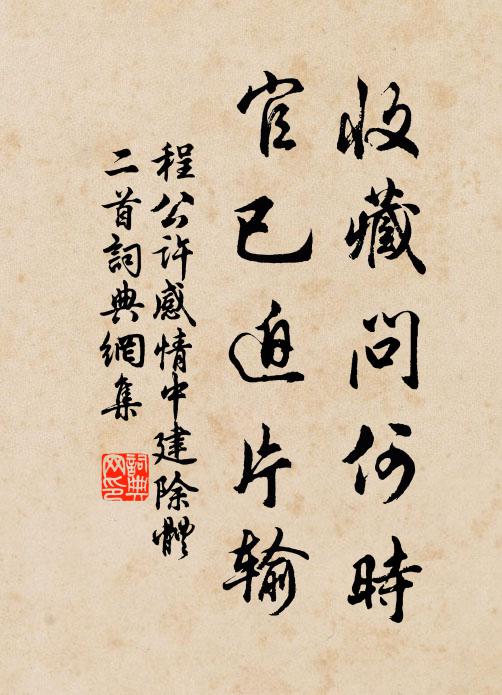 收藏問何時
官已迫片輸
程公許感情中建除體
二首詞典網集
詞典網印